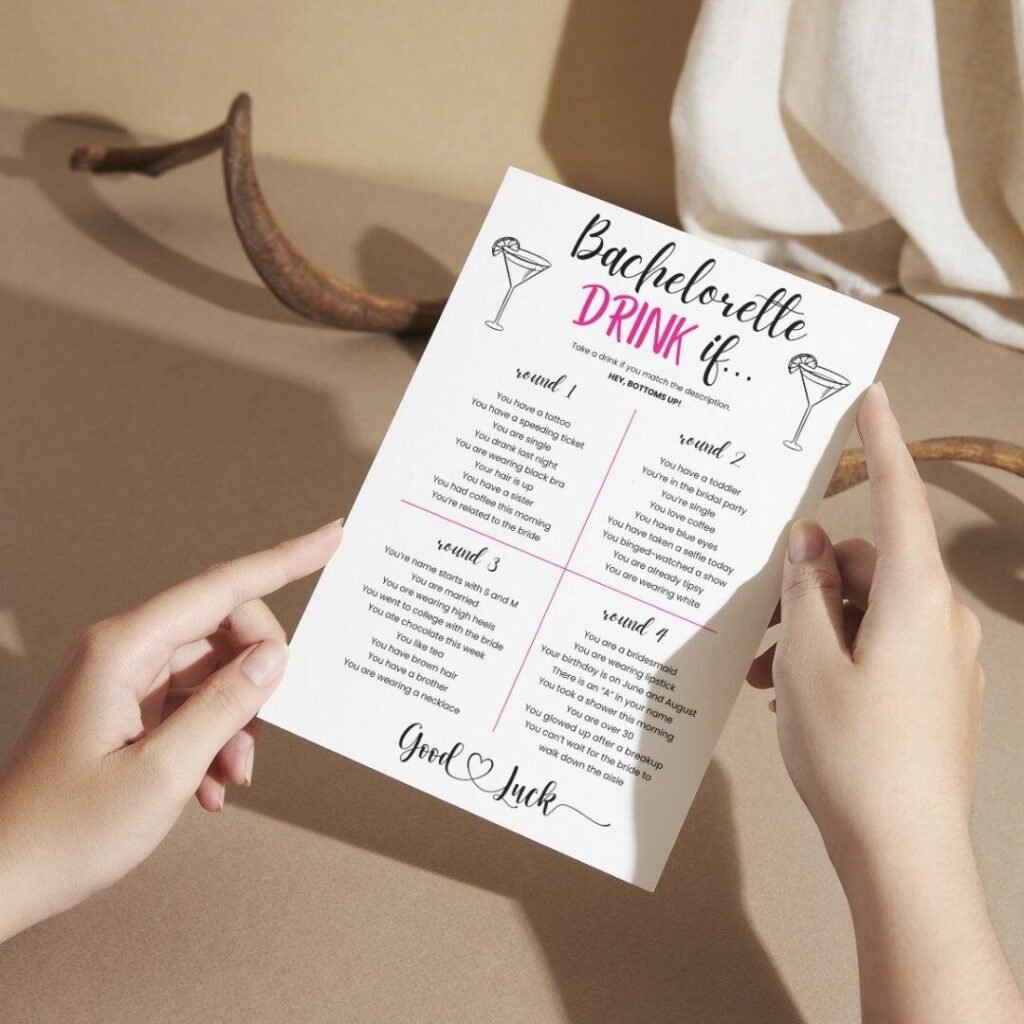 Bachelorette
DRINK if...
Take a drink if you match the description.
HEY, BOTTOMS UP!
round 1
You have a tattoo
You have a speeding ticket
You are single
You drank last night
You are wearing black bra
Your hair is up
You have a sister
You had coffee this morning
You're related to the bride
round 2
You have a toddler
You're in the bridal party
You're single
You love coffee
You have blue eyes
You have taken a selfie today
You binged-watched a show
You are already tipsy
You are wearing white
round 3
You're name starts with S and M
You are married
You are wearing high heels
You went to college with the bride
You ate chocolate this week
You like tea
You have brown hair
You have a brother
You are wearing a necklace
round 4
You are a bridesmaid
You are wearing lipstick
Your birthday is on June and August
There is an "A" in your name
You took a shower this morning
You are over 30
You glowed up after a breakup
You can't wait for the bride to
walk down the aisle
Good Luck